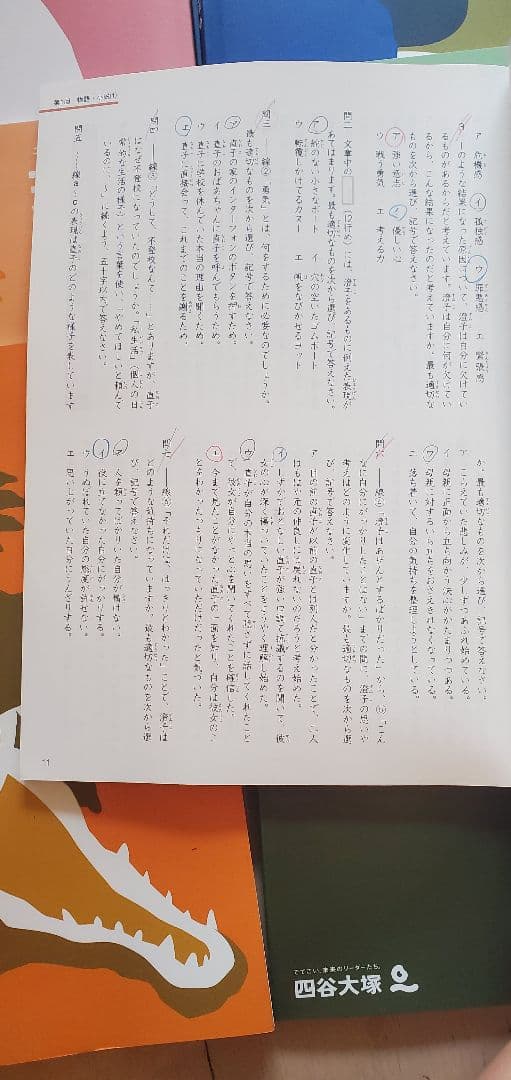 第1回 物語・小説(1)
ア 危機感 イ 孤独感
ウ 罪悪感 エ 緊張感
Y――のような結果になった原因について、澄子は自分に欠けてい
るものがあるからだと考えています。澄子は自分に何が欠けてい
るから、こんな結果になったのだと考えていますか。最も適切な
ものを次から選び、記号で答えなさい。
ア 強い意志 イ 優しい心
ウ 戦う勇気 エ 考える力
問二 文章中の (12行め)には、澄子をあるものに例えた表現が
あてはまります。最も適切なものを次から選び、記号で答えなさい。
ア 舵のない小さなボート イ 穴の空いたゴムボート
ウ 転覆しかけてるカヌー エ 帆をなびかせるヨット
問三 ――線②「勇気」とは、何をするために必要なのでしょうか。
最も適切なものを次から選び、記号で答えなさい。
ア 直子の家のインターフォンのボタンを押すため。
イ 直子のおばあちゃんに直子を呼んでもらうため。
ウ 直子に学校を休んでいた本当の理由を聞くため。
エ 直子に直接会って、これまでのことを謝るため。
問四 ――線③「どうして、不登校なんて……」とありますが、直子
はなぜ不登校になっていたのでしょうか。「私生活」(個人の日
常的な生活の様子)という言葉を使い、「やめてほしいと頼んで
いるのに、～」に続くよう、五十字以内で答えなさい。
問五 ～～線a～cの表現は直子のどのような様子を表しています
か。最も適切なものを次から選び、記号で答えなさい。
ア こらえていた悲しみが、少しずつあふれ始めている。
イ 母親に正面から立ち向かう決心がかたまりつつある。
ウ 母親に対するいら立ちをおさえきれなくなっている。
エ 落ち着いて、自分の気持ちを整理しようとしている。
問六 ――線④「澄子はあぜんとするばかりだった」から、⑥「こん
なに自分にがっかりしたことはない」までの間に、澄子の思いや
考えはどのように変化していますか。最も適切なものを次から選
び、記号で答えなさい。
ア 目の前の直子が以前の直子とは別人だと分かったことで、二人
はもはや元の仲良しには戻れないのだろうと考え始めた。
イ しずかでおとなしい直子が強い口調で抗議するのを聞いて、彼
女の心が深く傷ついていたことをようやく理解し始めた。
ウ 直子が自分の本当の思いをすべて隠さずに話してくれたこと
で、彼女が自分にいっそう心を開いてくれたことを確信した。
エ 今まで見たことがなかった直子の一面を知り、自分は彼女のこ
とをわかったつもりになっていただけだったと気づいた。
問七 ――線⑤「それだけは、はっきりとわかった」ことで、澄子は
どのような気持ちになっていますか。最も適切なものを次から選
び、記号で答えなさい。
ア 人を頼ってばかりいた自分が情けない。
イ 役に立てなかった自分にがっかりする。
ウ うぬぼれていた自分の態度が許せない。
エ 思い上がっていた自分にうんざりする。
11
でてこい、未来のリーダーたち。
四谷大塚